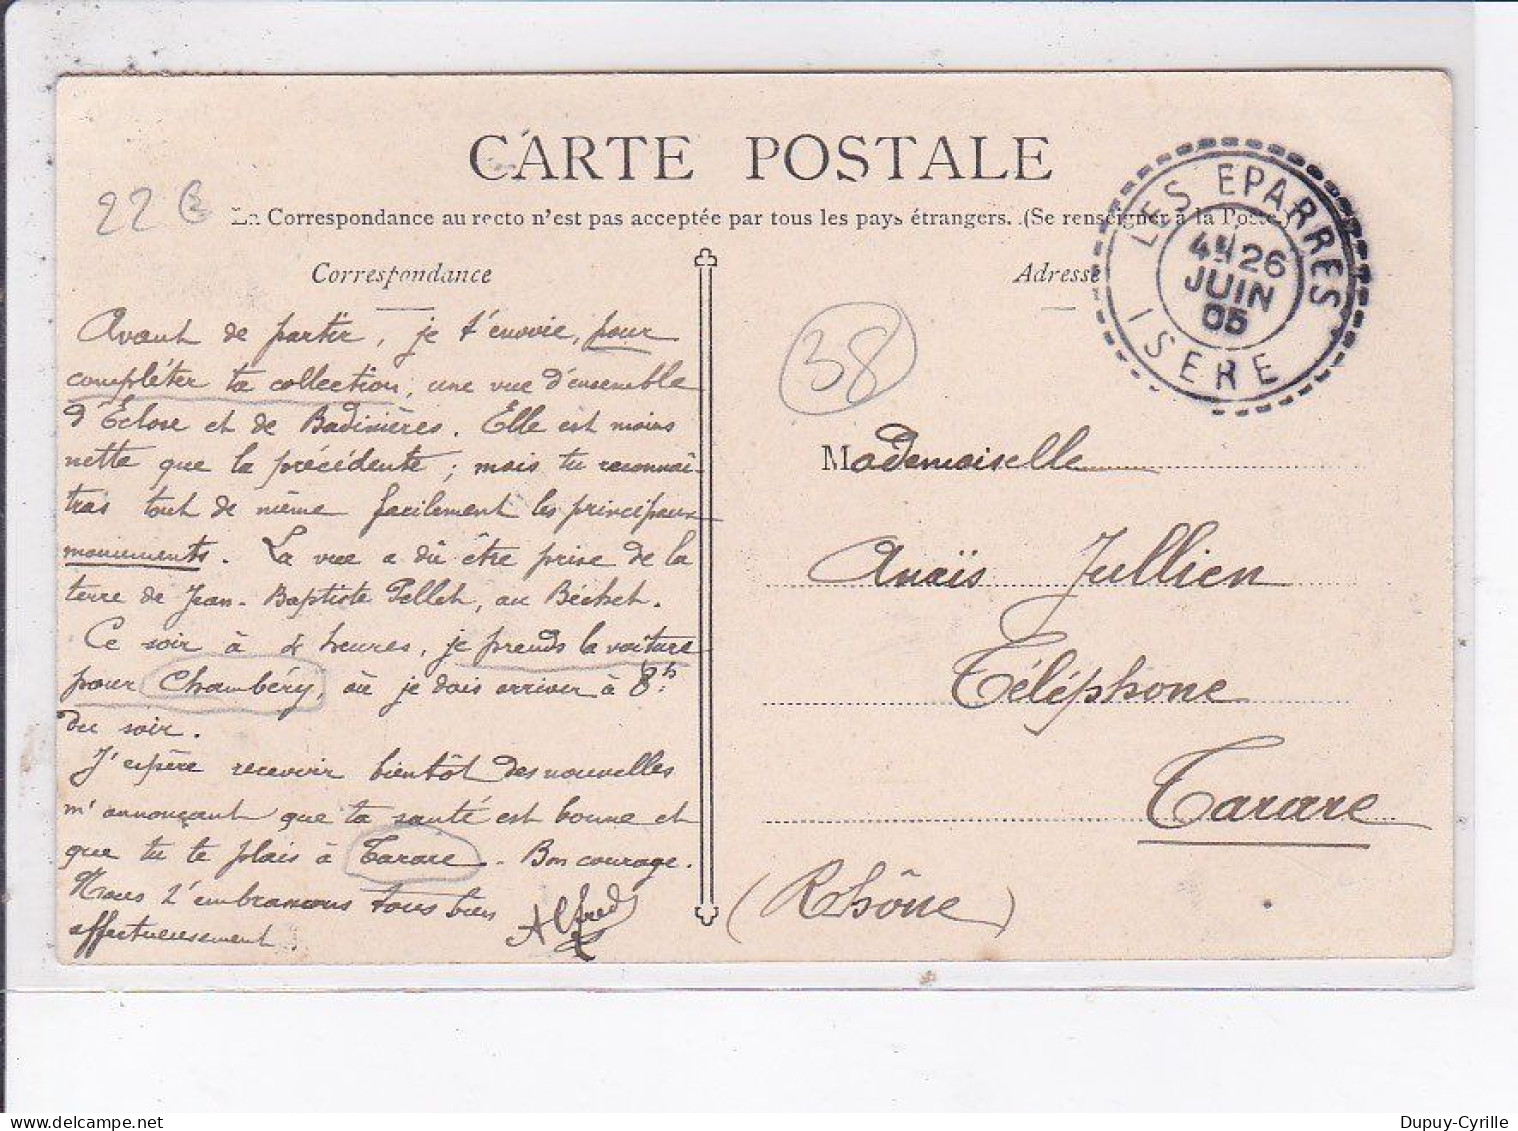 CARTE POSTALE
22 €
La Correspondance au recto n'est pas acceptée par tous les pays étrangers. (Se renseigner à la Poste.)
LES EPARRES
4H 26
JUIN
05
ISERE
Correspondance
Avant de partir, je t'envoie, pour
compléter ta collection, une vue d'ensemble
d'Eclose et de Badinières. Elle est moins
nette que la précédente ; mais tu reconnaî-
tras tout de même facilement les principaux
monuments. La vue a dû être prise de la
terre de Jean-Baptiste Pellet, au Béchet.
Ce soir à 4 heures, je prends la voiture
pour Chambéry, où je dois arriver à 8h
du soir.
J'espère recevoir bientôt des nouvelles
m'annonçant que ta santé est bonne et
que tu te plais à Tarare. Bon courage.
Nous t'embrassons tous bien
affectueusement.
Alfred
Adresse
38
Mademoiselle
Anaïs Jullien
Téléphone
Tarare
(Rhône)
Dupuy-Cyrille